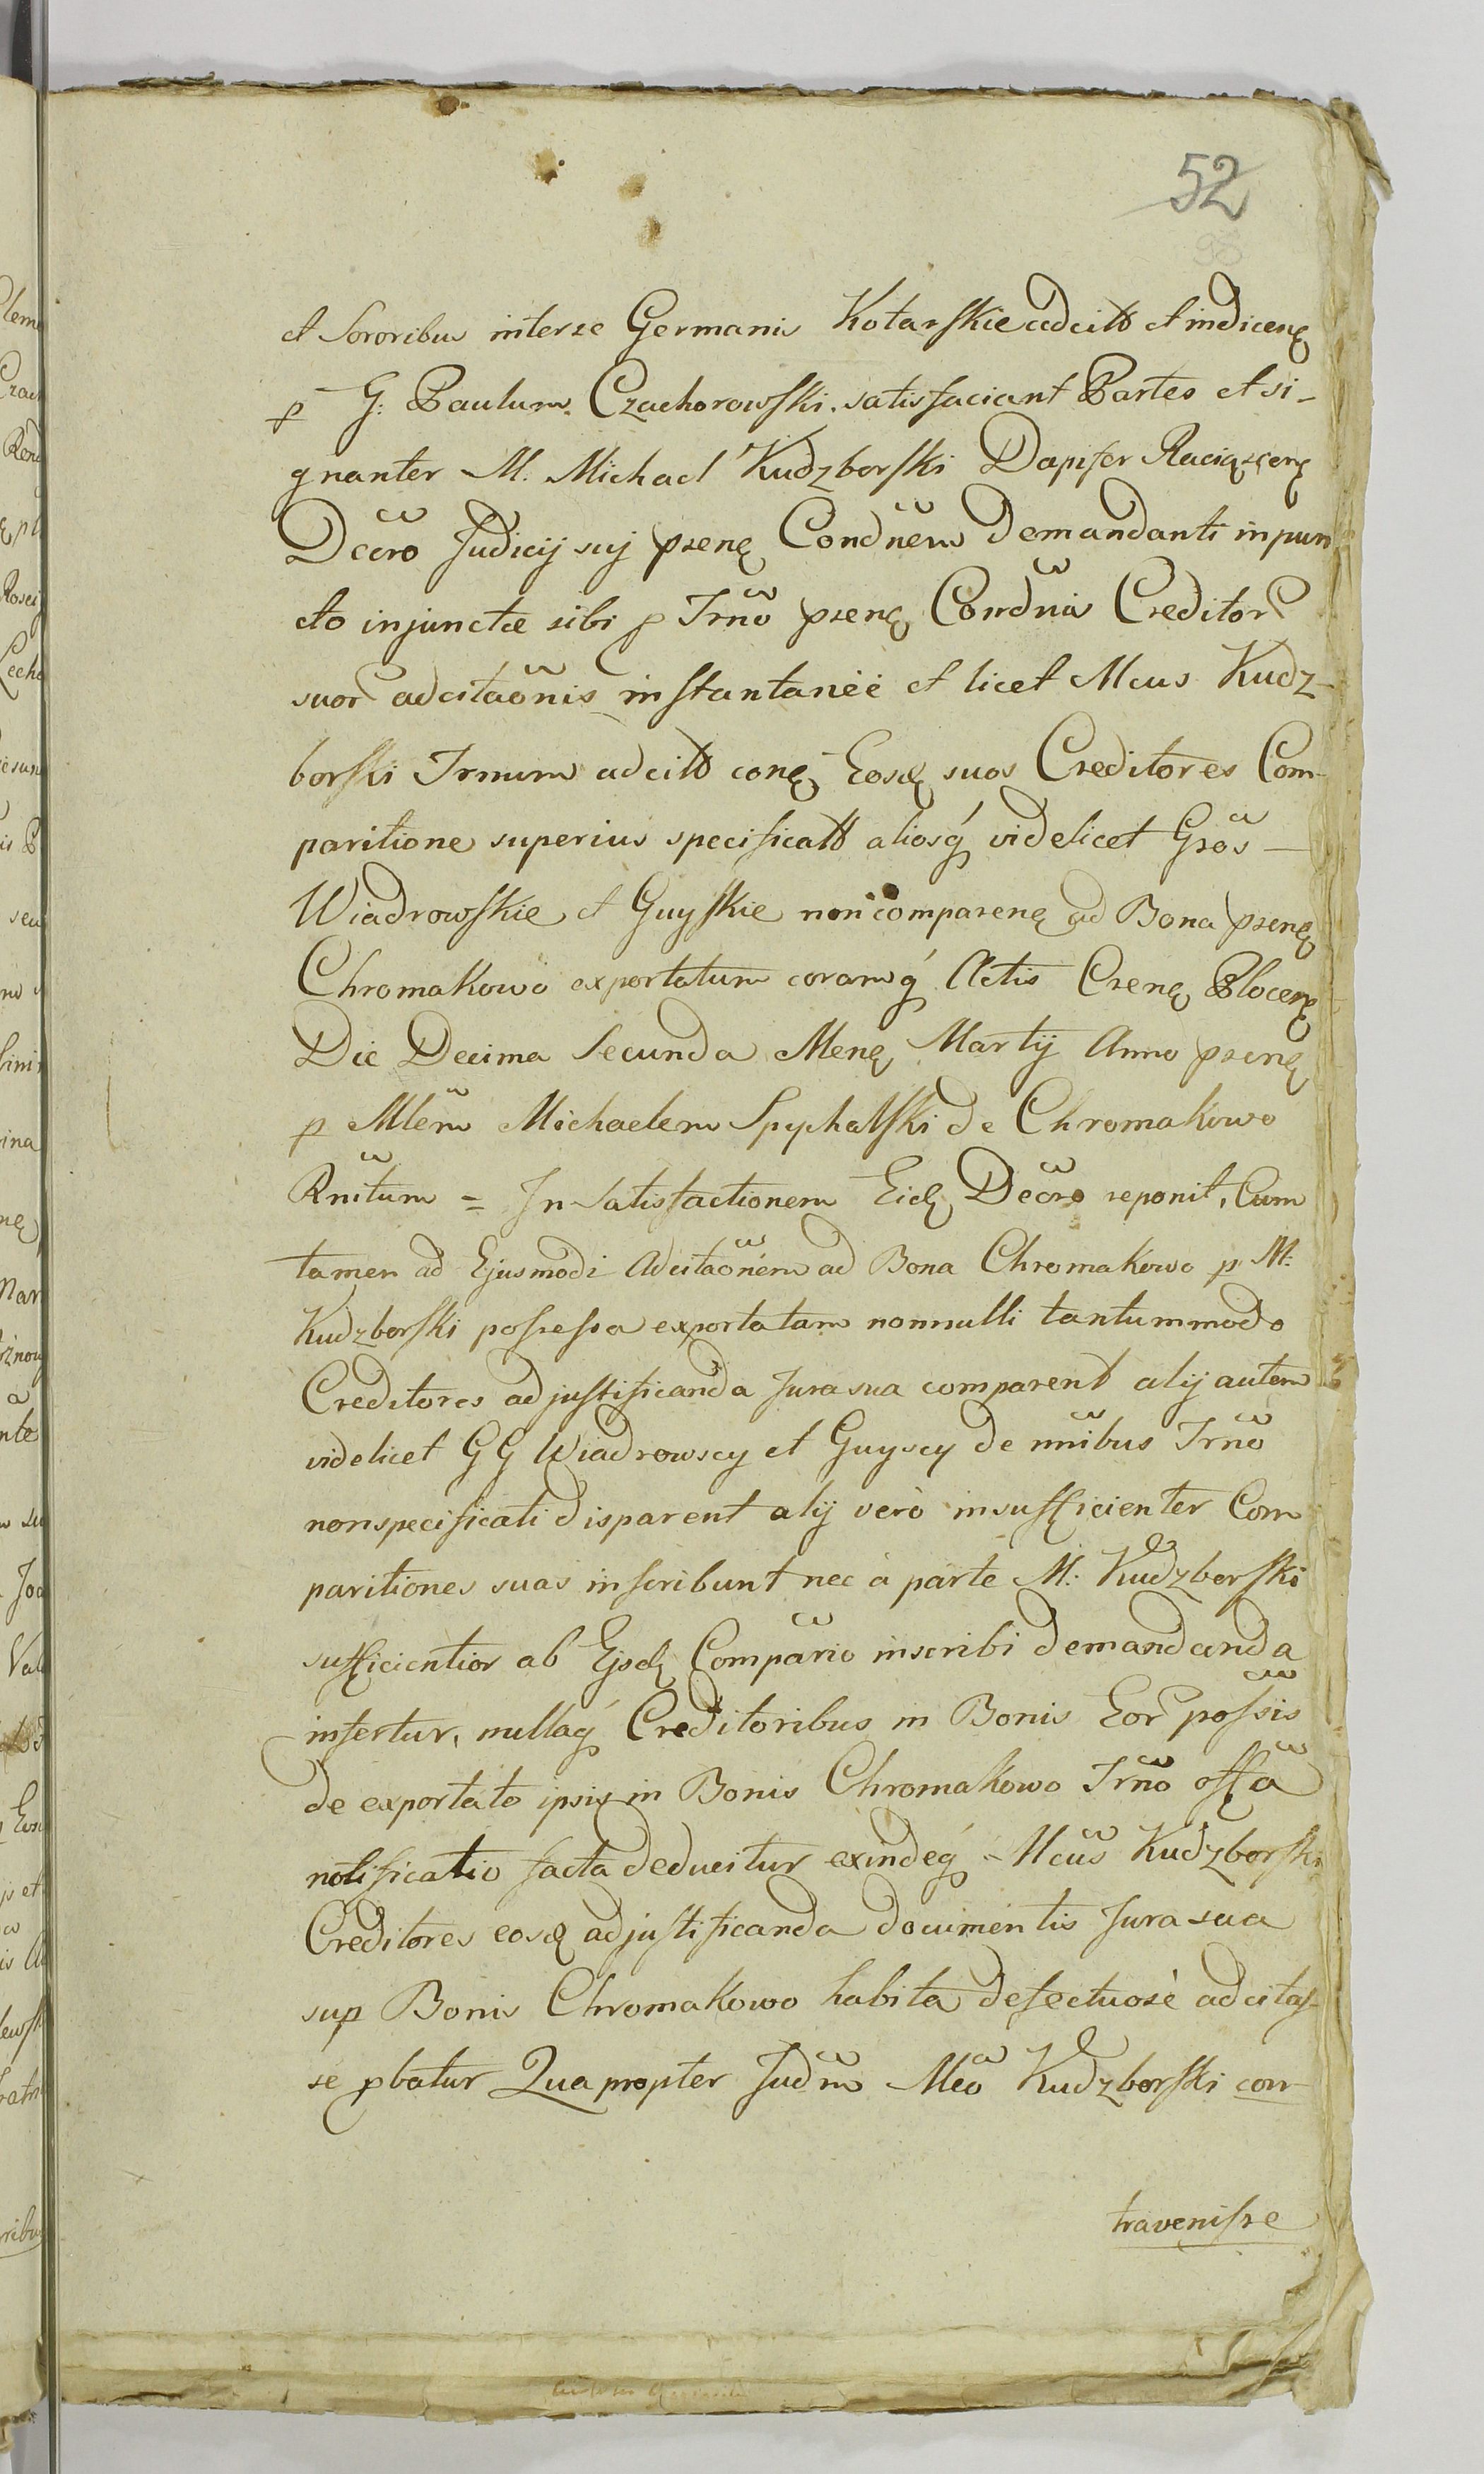 52
98
et Sororibus inter se Germanis Kotarskie adcitt et indicenę
p G: Paulum Czachorowski. satisfaciant Partes et si-
gnanter M. Michael Kudzborski Dapifer Raciązcenę
Dccro Judicij suj psenę Condnem demandanti in pun
cto injunctæ sibi p Trno psenę Condnia Creditor
suor adcitaonis instantanèè et licet Mcus Kudz-
borski Trnum adcitt conę Eosdę suos Creditores Com-
paritione superius specificatt aliosq́ videlicet Gsos
Wiadrowskie et Guyskie non comparenę ad Bona psenę
Chromakowo exportatum coramq́ Actis Csenę Plocenę
Die Decima Secunda Menę Martij Anno psenę
p Mlem Michaelem Spychalski de Chromakowo
Rnitum = In Satisfactionem Eidę Decro reponit, Cum
tamen ad Ejusmodi Adcitaonem ad Bona Chromakowo p M:
Kudzborski possessa exportatam nonnulli tantummodo
Creditores ad justificanda Jura sua comparent alij autem
videlicet GG Wiadrowscy et Guyscy de nnibus Trno
non specificati disparent alij verò insufficienter Com
paritiones suas inscribunt nec à parte M: Kudzborski
sufficientior ab Ejsdę Compario inscribi demandanda
infertur, nullaq́ Creditoribus in Bonis Eor possis
de exportato ipsis in Bonis Chromakowo Trno offa
notificatio facta deducitur exindeq́ Mcus Kudzborski
Creditores eosdę ad justificanda documentis Jura sua
sup Bonis Chromakowo habita defectuosè adcitas-
se pbatur Qua propter Judm Mco Kudzborski con-
travenisse